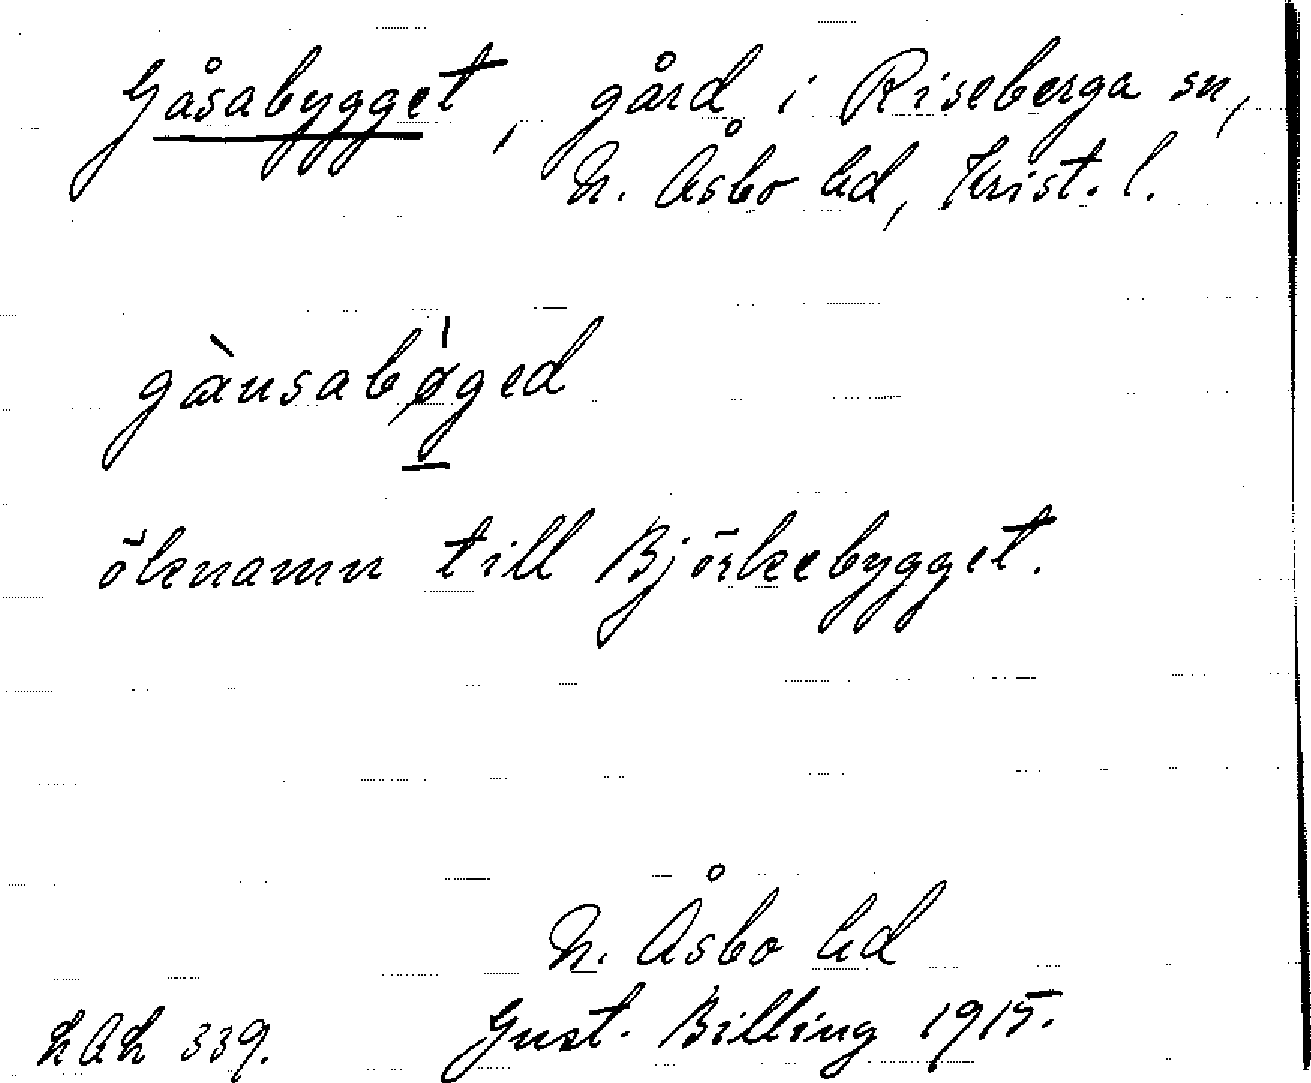 Gåsabygget, gård i Riseberga sn,
N. Åsbo hd, Krist. l.
gànsabøged
öknamn till Björkebygget.
N. Åsbo hd
LAL 339. Gust. Billing 1915.